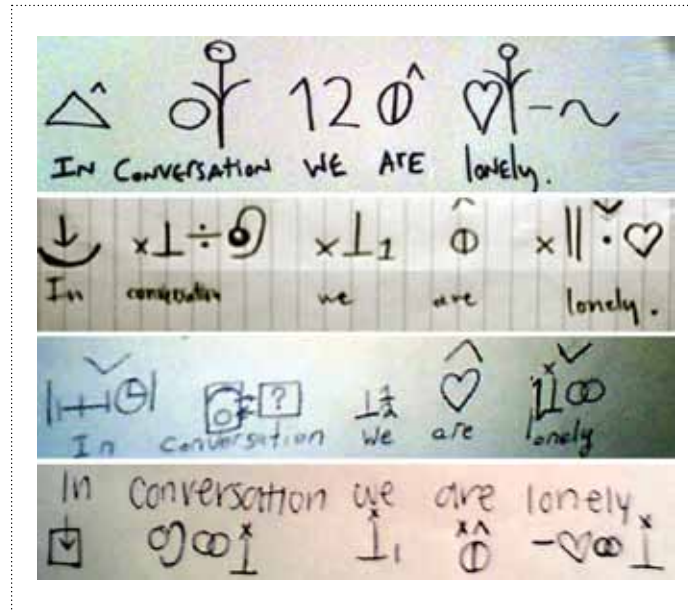 12
In Conversation we are lonely.
In conversation we are lonely.
?
In Conversation we are lonely
In Conversation we are lonely